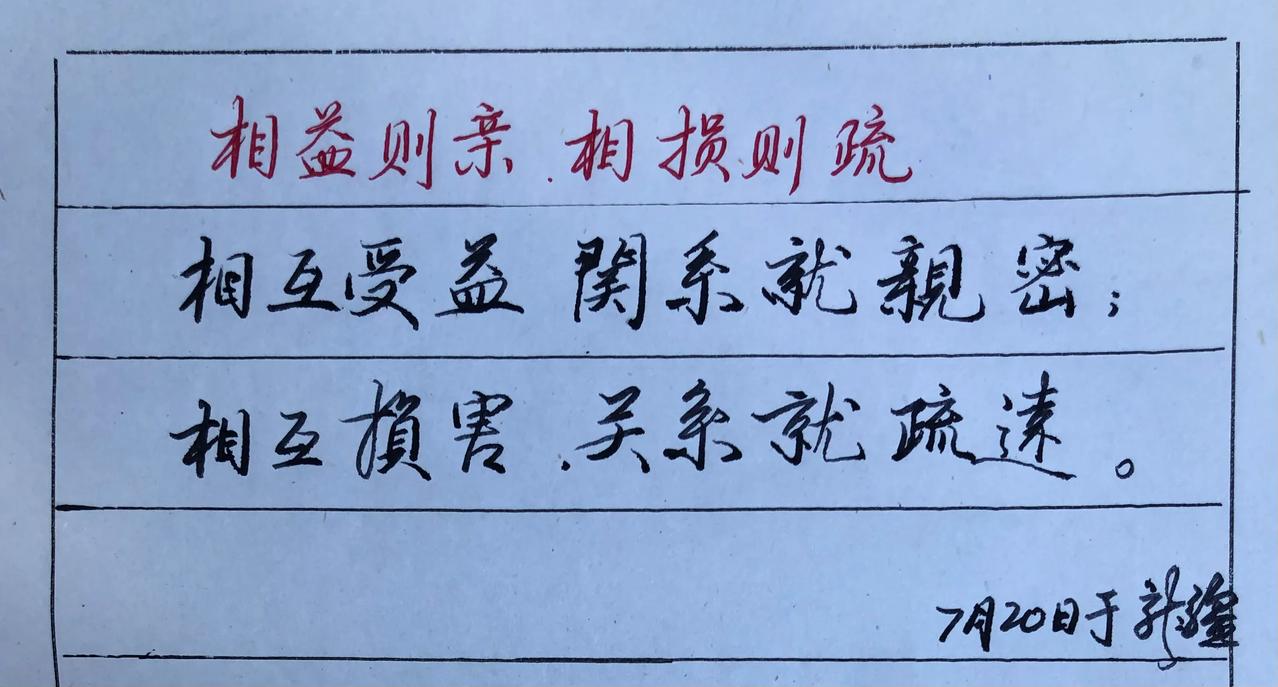 相益则亲.相损则疏
相互受益 関系就親密;
相互損害.关系就疏遠。
7月20日于